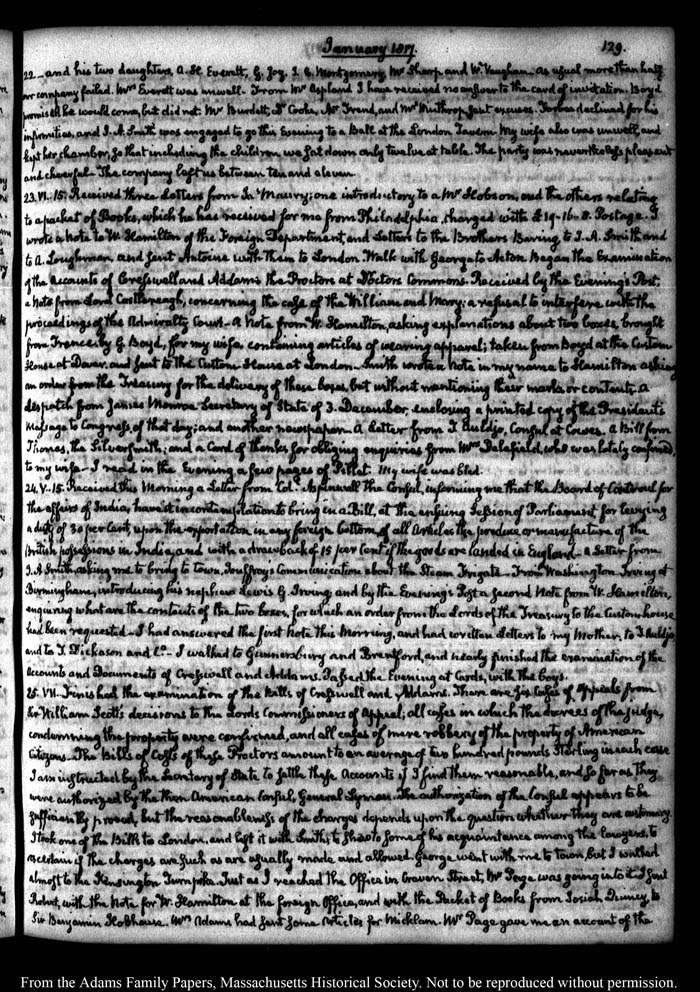 January 1817.
129.
22_ and his two daughters, A. H. Everett, G. Joy. J. C. Montgomery, Mr Sharp and W. Vaughan. As usual more than half
our company failed. Mrs Everett was unwell. From Mr Aspland I have received no answer to the card of invitation. Boyd
promised he would come, but did not. Mr Burdett, Cooke, Mr Frend, and Mr Winthrop sent excuses. Forbes declined for his
infirmities, and J. A. Smith was engaged to go this Evening to a Ball at the London Tavern. My wife also was unwell, and
kept her chamber, so that including the children, we sat down only twelve at table. The party was nevertheless pleasant
and cheerful. The company left us between ten and eleven.
23. VI. 15. Received three Letters from Jas Maury; one introductory to a Mr Hobson, and the others relating
to a packet of Books, which he has received for me from Philadelphia, charged with £19-16-8. Postage. I
wrote a Note to W. Hamilton of the Foreign Department, and Letters to the Brothers Baring, to J. A. Smith and
to A. Loughman, and sent Antoine with them to London. Walk with George to Acton. Began the Examination
of the Accounts of Cresswell and Addams the Proctors at Doctors Commons. Received by the Evening Post,
a Note from Lord Castlereagh, concerning the case of the William and Mary; a refusal to interfere with the
proceedings of the Admiralty Court. A Note from W. Hamilton, asking explanations about two boxes, brought
from France by G. Boyd, for my wife, containing articles of wearing apparel; taken from Boyd at the Custom
House at Dover, and sent to the Custom House at London. Smith wrote a Note in my name to Hamilton asking
an order from the Treasury for the delivery of these boxes, but without mentioning their marks or contents. A
despatch from James Monroe Secretary of State of 3. December, enclosing a printed copy of the President's
Message to Congress, of that day; and another newspaper. A Letter from T. Auldjo, Consul at Cowes. A Bill from
Thomas, the Silversmith; and a Card of thanks for obliging enquiries from Mrs Delafield, who was lately confined,
to my wife. I read in the Evening a few pages of Pillet. My wife was bled.
24. V. 15. Received this Morning a Letter from Col. Aspinwall the Consul, informing me that the Board of Controul for
the affairs of India, have it in contemplation to bring in a Bill, at the ensuing Session of Parliament for levying
a duty of 30 per Cent, upon the exportation in any foreign bottom, of all Articles the produce or manufacture of the
British possessions in India, and with a drawback of 15 per Cent if the goods are landed in England. A Letter from
J. A. Smith, asking me to bring to town, Jouffroy's Communication about the Steam Frigate. From Washington Irving at
Birmingham, introducing his nephew Lewis G. Irving, and by the Evening Post a second Note from W. Hamilton,
enquiring what are the contents of the two boxes, for which an order from the Lords of the Treasury to the Custom house
had been requested. I had answered the first Note this Morning, and had written Letters to my Mother, to T. Auldjo,
and to T. Dickason and Co. I walked to Gunnersbury and Brentford, and nearly finished the examination of the
Accounts and Documents of Cresswell and Addams. Passed the Evening at Cards, with the boys.
25. VII. Finished the examination of the Bills of Cresswell and Addams. There are six Cases of Appeals from
Sir William Scott's decisions to the Lords Commissioners of Appeal; all cases in which the decrees of the judge,
condemning the property were confirmed, and all cases of mere robbery of the property of American
Citizens. The Bills of Costs of these Proctors amount to an average of two hundred pounds Sterling in each case
I am instructed by the Secretary of State to settle these Accounts if I find them reasonable, and so far as they
were authorized by the then American Consul, General Lyman. The authorization of the Consul appears to be
sufficiently proved, but the reasonableness of the charges depends upon the question whether they are customary.
I took one of the Bills to London, and left it with Smith, to shew to some of his acquaintance among the lawyers, to
ascertain if the charges are such as are usually made and allowed. George went with me to town, but I walked
almost to the Kensington Turnpike. Just as I reached the Office in Craven Street, Mr Page was going in to it. I sent
Robert, with the Note for W. Hamilton at the foreign Office, and with the Packet of Books from Josiah Quincy, to
Sir Benjamin Hobhouse. Mrs Adams had sent some Articles for Micklam. Mr Page gave me an account of the
From the Adams Family Papers, Massachusetts Historical Society. Not to be reproduced without permission.